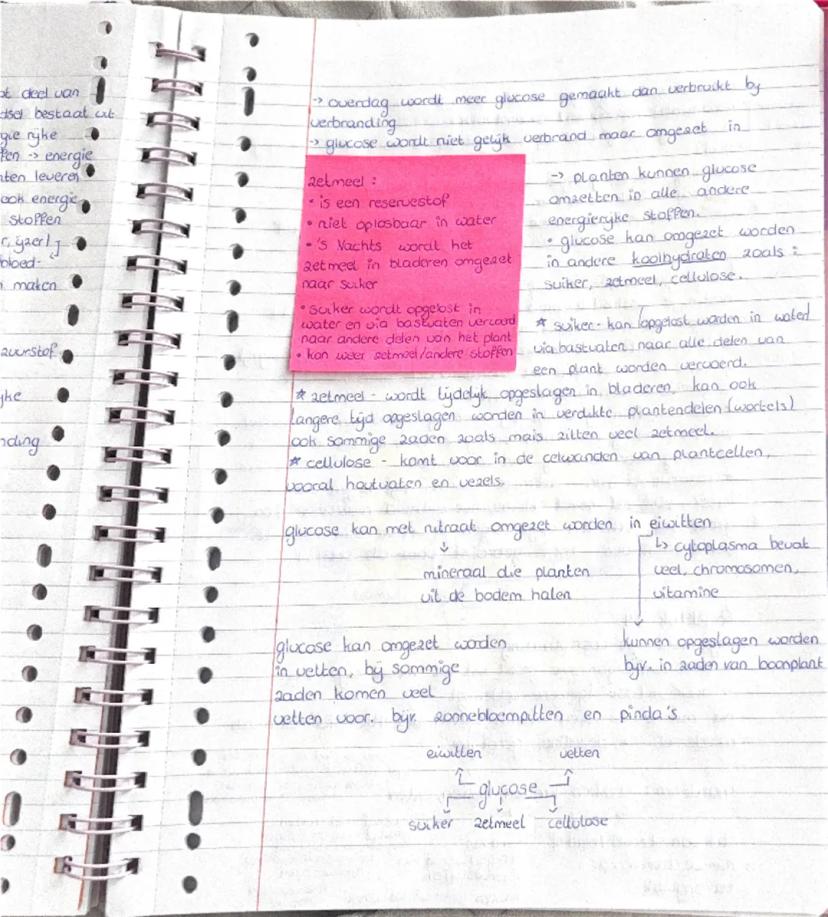 ot deel van
dsel bestaat uit
gie rijke
fen -> energie
nten leveren
ook energie
stoffen
r, ijzer)
bloed-
n maken
zuurstof
yke
nding
-> overdag wordt meer glucose gemaakt dan verbruikt by
verbranding
-> glucose wordt niet gelijk verbrand maar omgezet in
zetmeel :
• is een reservestof
• niet oplosbaar in water
• 's Nachts wordt het
zetmeel in bladeren omgezet
naar suiker
• suiker wordt opgelost in
water en via bastvaten vervoerd
naar andere delen van het plant
• kan weer zetmeel/andere stoffen
-> planten kunnen glucose
omzetten in alle andere
energierijke stoffen.
• glucose kan omgezet worden
in andere koolhydraten zoals :
suiker, zetmeel, cellulose.
* suiker - kan opgelost worden in water
via bastvaten naar alle delen van
een plant worden vervoerd.
* zetmeel - wordt tijdelijk opgeslagen in bladeren, kan ook
langere tijd opgeslagen worden in verdikte plantendelen (wortels)
ook sommige zaden zoals mais zitten veel zetmeel.
* cellulose - komt voor in de celwanden van plantcellen,
vooral houtvaten en vezels.
glucose kan met nitraat omgezet worden in eiwitten
↓
mineraal die planten
uit de bodem halen
↳ cytoplasma bevat
veel, chromosomen,
vitamine
kunnen opgeslagen worden
bijv. in zaden van boonplant
glucose kan omgezet worden
in vetten, bij sommige
zaden komen veel
vetten voor. bijv. zonnebloempitten en pinda's
eiwitten vetten
glucose
suiker zetmeel cellulose